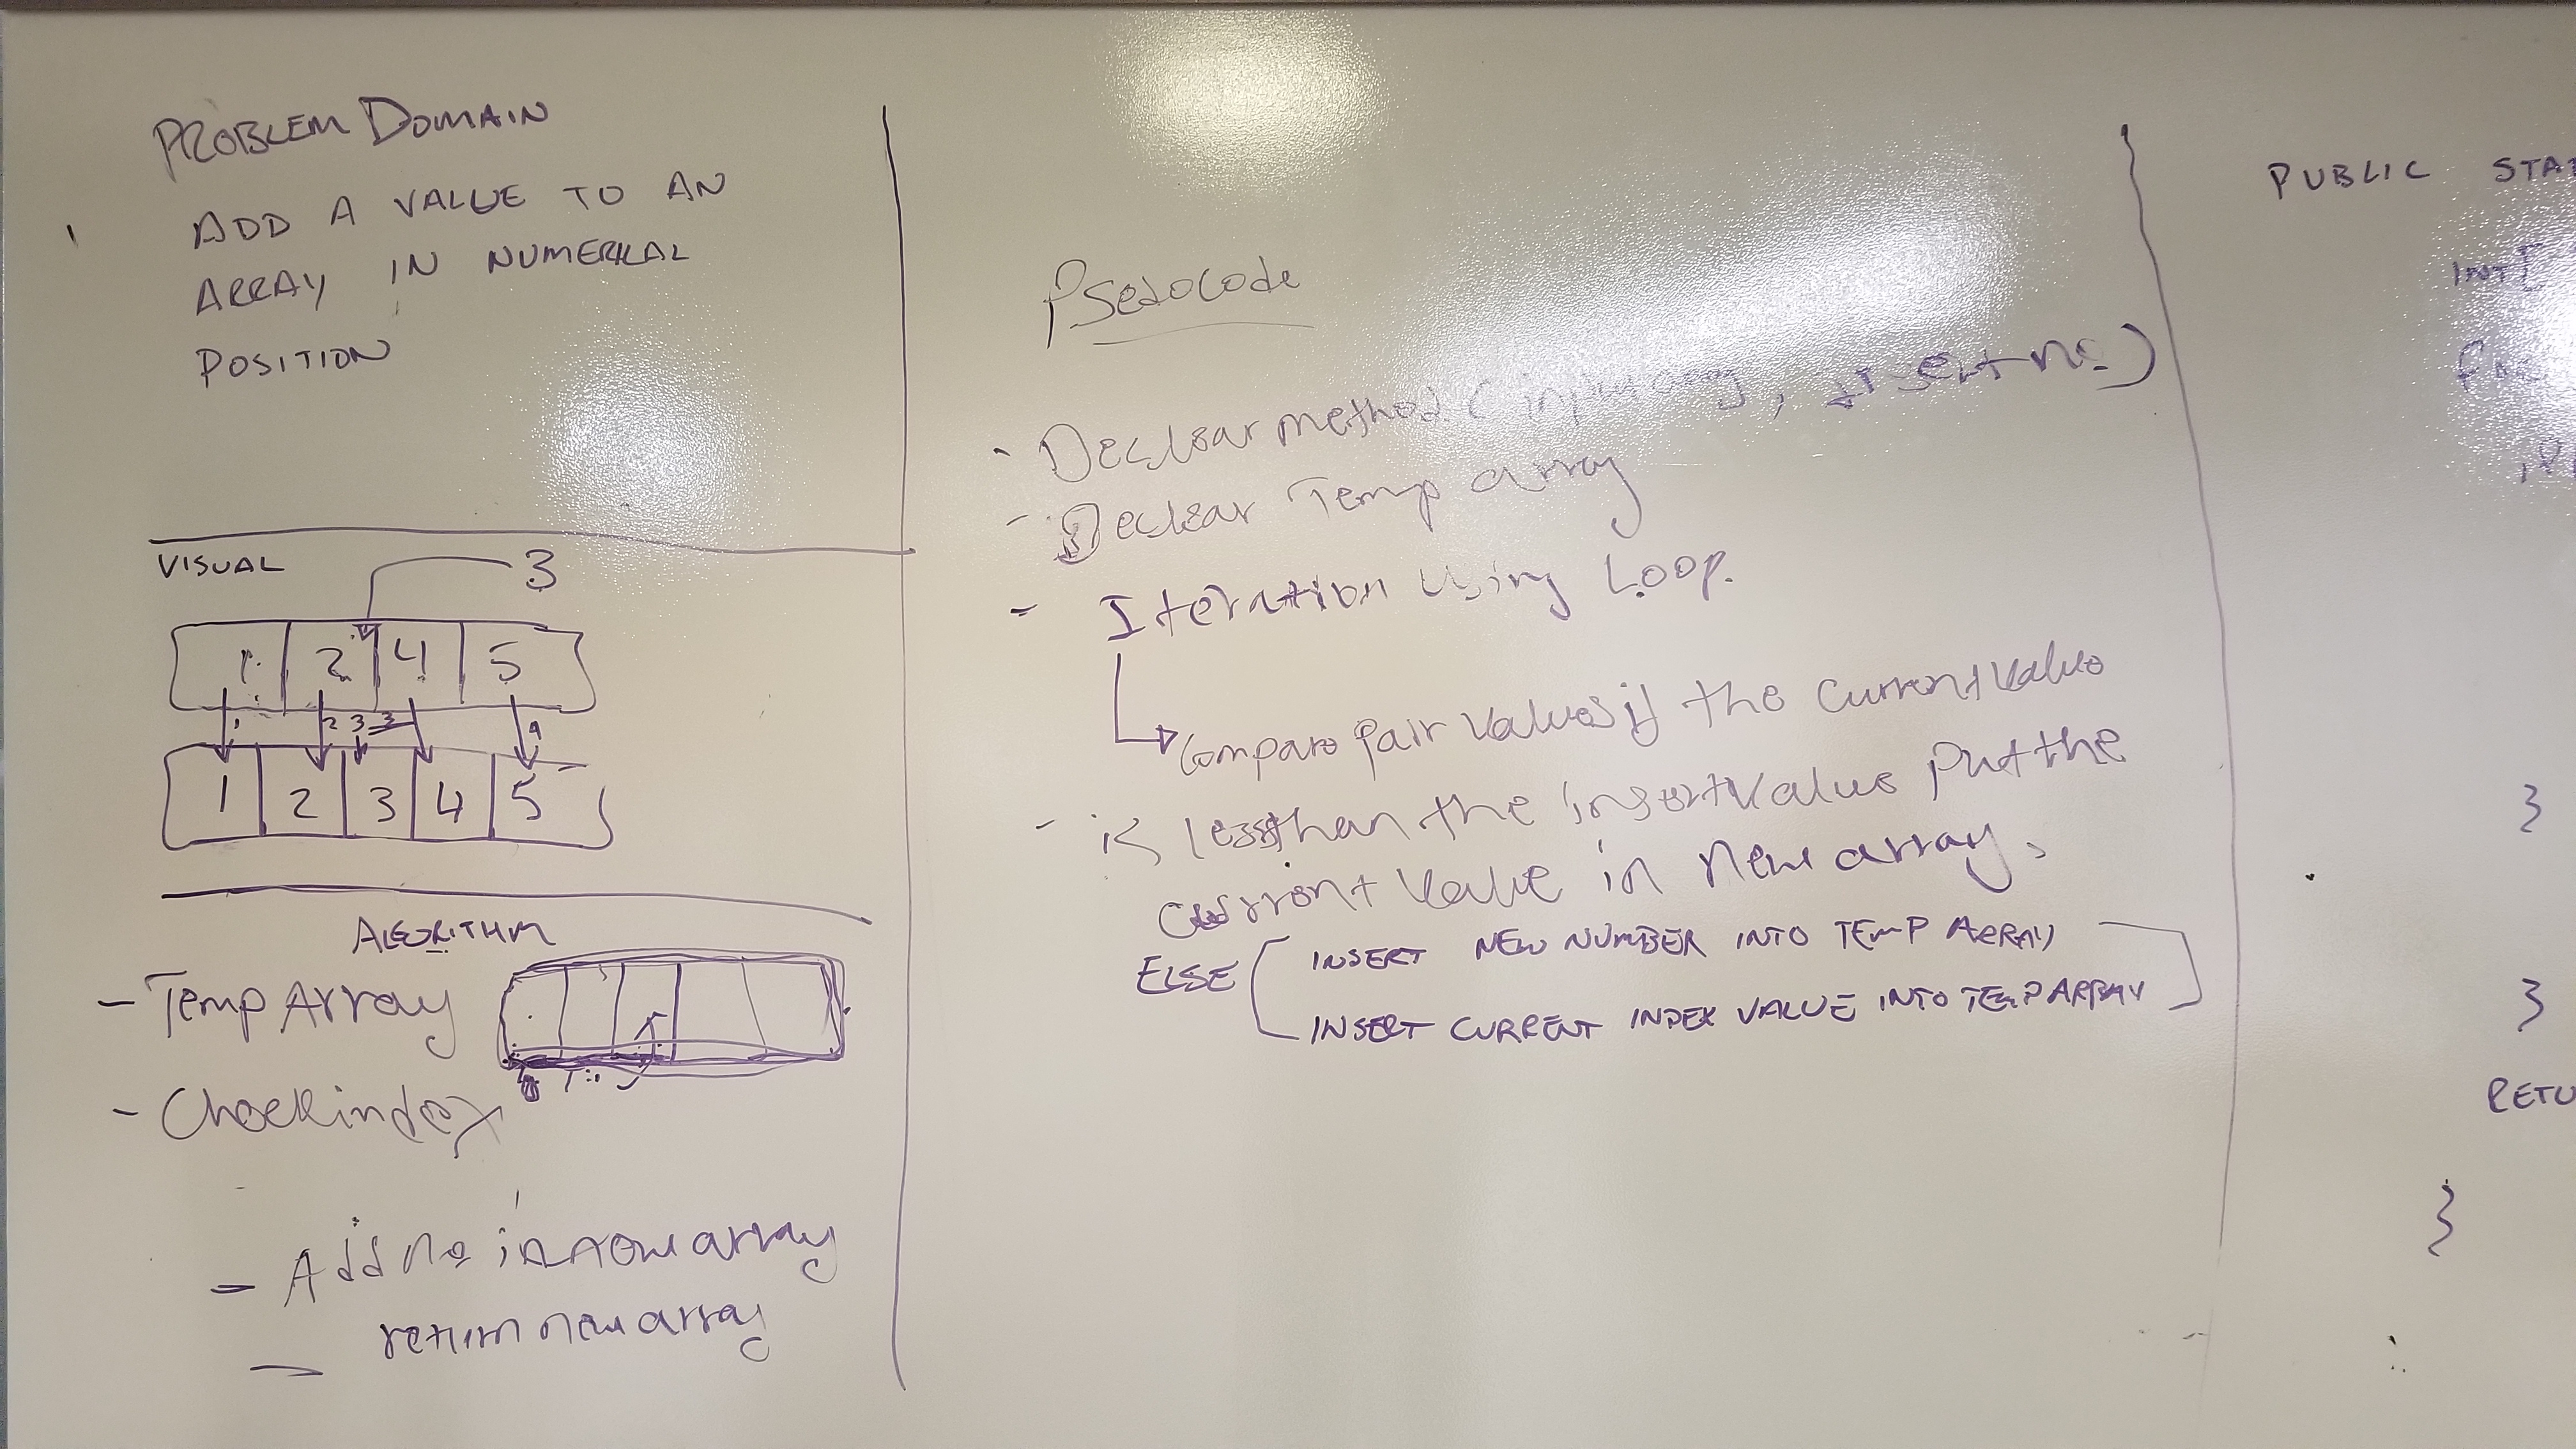 PROBLEM DOMAIN
ADD A VALUE TO AN
ARRAY IN NUMERICAL
POSITION
VISUAL
3
1 2 4 5
1 2 3 3 4
1 2 3 4 5
ALGORITHM
- Temp Array
- Check index
- Add no in new array
- return new array
Psedocode
- Declear method (input array, insert no.)
- Declear Temp array
- Iteration Using Loop.
Compare pair Values if the Current Value
- is less than the insert Value Put the
Current Value in New array,
ELSE
INSERT NEW NUMBER INTO TEMP ARRAY
INSERT CURRENT INDEX VALUE INTO TEMP ARRAY
PUBLIC STAT
INT[
}
}
RETU
}